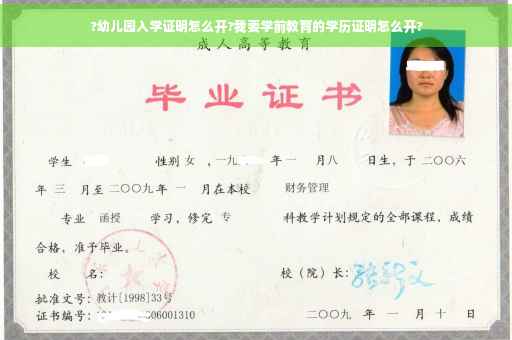 ?幼儿园入学证明怎么开?我要学前教育的学历证明怎么开?
成人高等教育
毕业证书
学生 性别 女 ，一九 年 一 月八 日生，于 二〇〇六
年 三 月至 二〇〇九 年 一 月在本校 财务管理
专业 函授 学习，修完 专 科教学计划规定的全部课程，成绩
合格，准予毕业。
校 名： 校（院）长：
批准文号：教计[1998]33号
证书编号： 06001310 二〇〇九 年 一 月 十 日